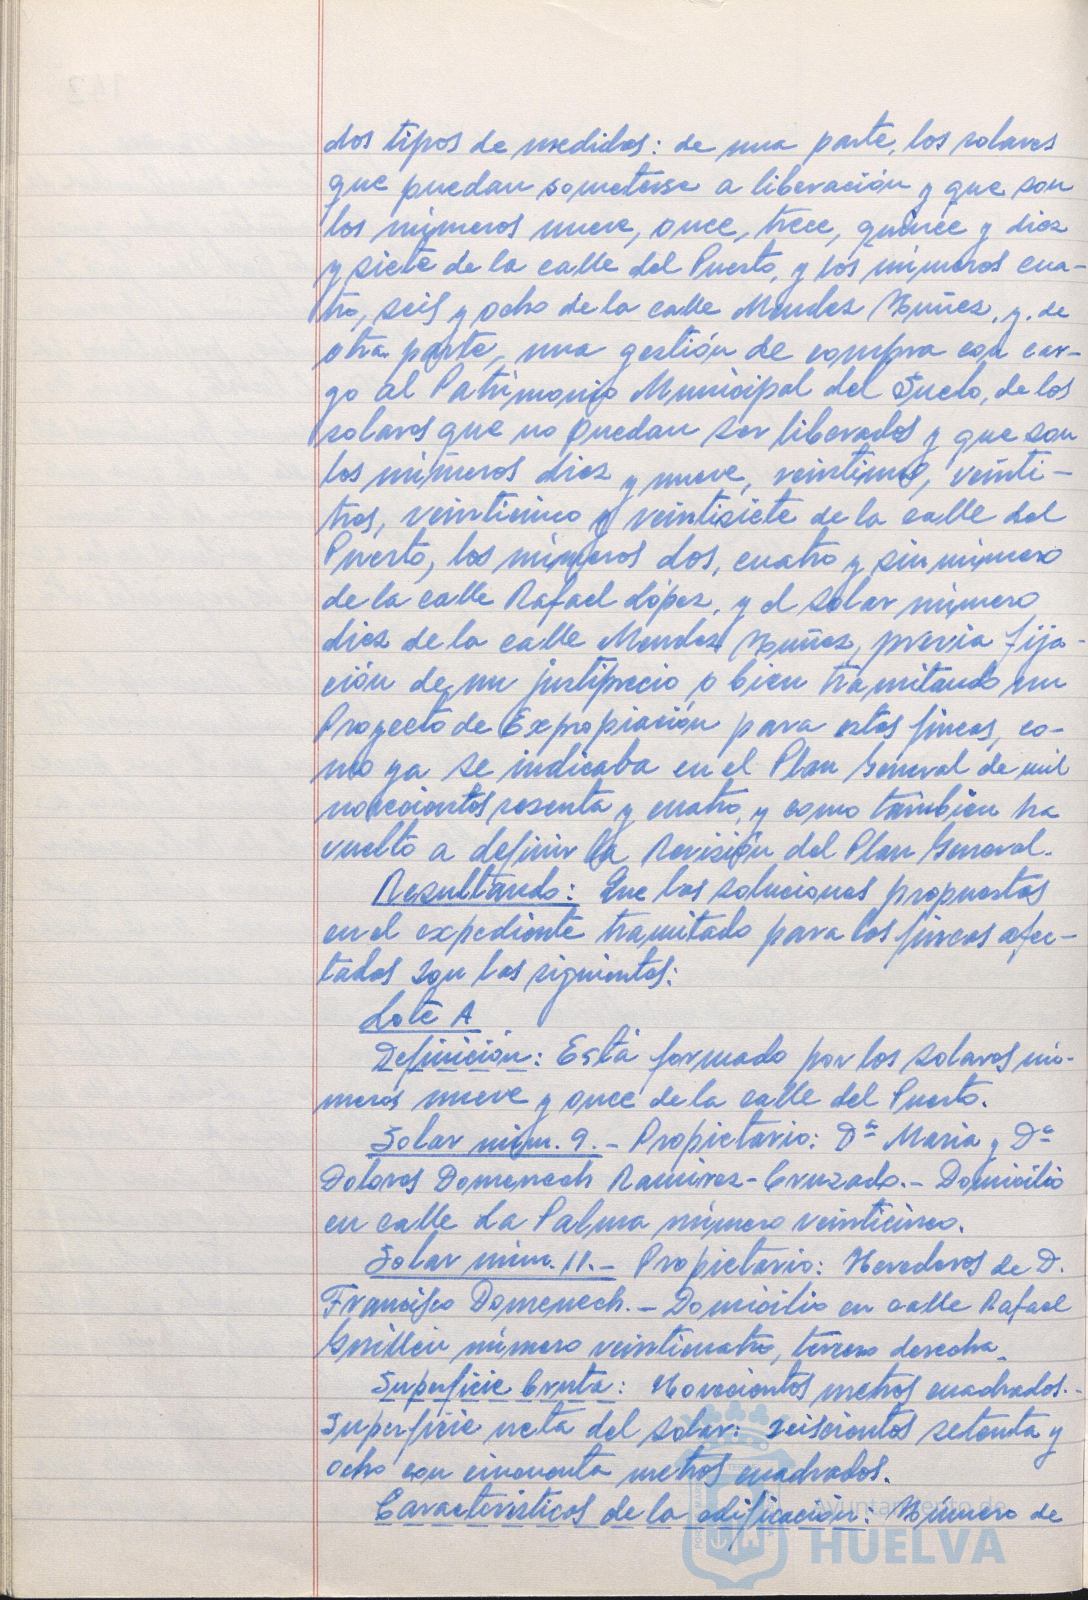 dos tipos de medidas: de una parte, los solares
que puedan someterse a liberación y que son
los números nueve, once, trece, quince y diez
y siete de la calle del Puerto, y los números cua-
tro, seis y ocho de la calle Mendez Nuñez, y, de
otra parte, una gestión de compra con car-
go al Patrimonio Municipal del Suelo, de los
solares que no puedan ser liberados y que son
los números diez y nueve, veintiuno, veinti-
tres, veinticinco y veintisiete de la calle del
Puerto, los números dos, cuatro y sin número
de la calle Rafael López, y el solar número
diez de la calle Mendez Nuñez, previa fija-
ción de un justiprecio o bien tramitando un
Proyecto de Expropiación para estas fincas, co-
mo ya se indicaba en el Plan General de mil
novecientos sesenta y cuatro, y como también ha
vuelto a definir la Revisión del Plan General.
Resultando: Que las soluciones propuestas
en el expediente tramitado para las fincas afec-
tadas son las siguientes:
Lote A
Definición: Está formado por los solares nú-
meros nueve y once de la calle del Puerto.
Solar núm. 9.- Propietario: Dª Maria y Dª
Dolores Domenech Ramirez-Cruzado.- Domicilio
en calle La Palma número veinticinco.
Solar núm. 11.- Propietario: Herederos de D.
Francisco Domenech.- Domicilio en calle Rafael
Guillén número veinticuatro, tercero derecha.
Superficie bruta: Novecientos metros cuadrados.-
Superficie neta del solar: seiscientos setenta y
ocho con cincuenta metros cuadrados.
Características de la edificación: Número de
Ayuntamiento de
HUELVA